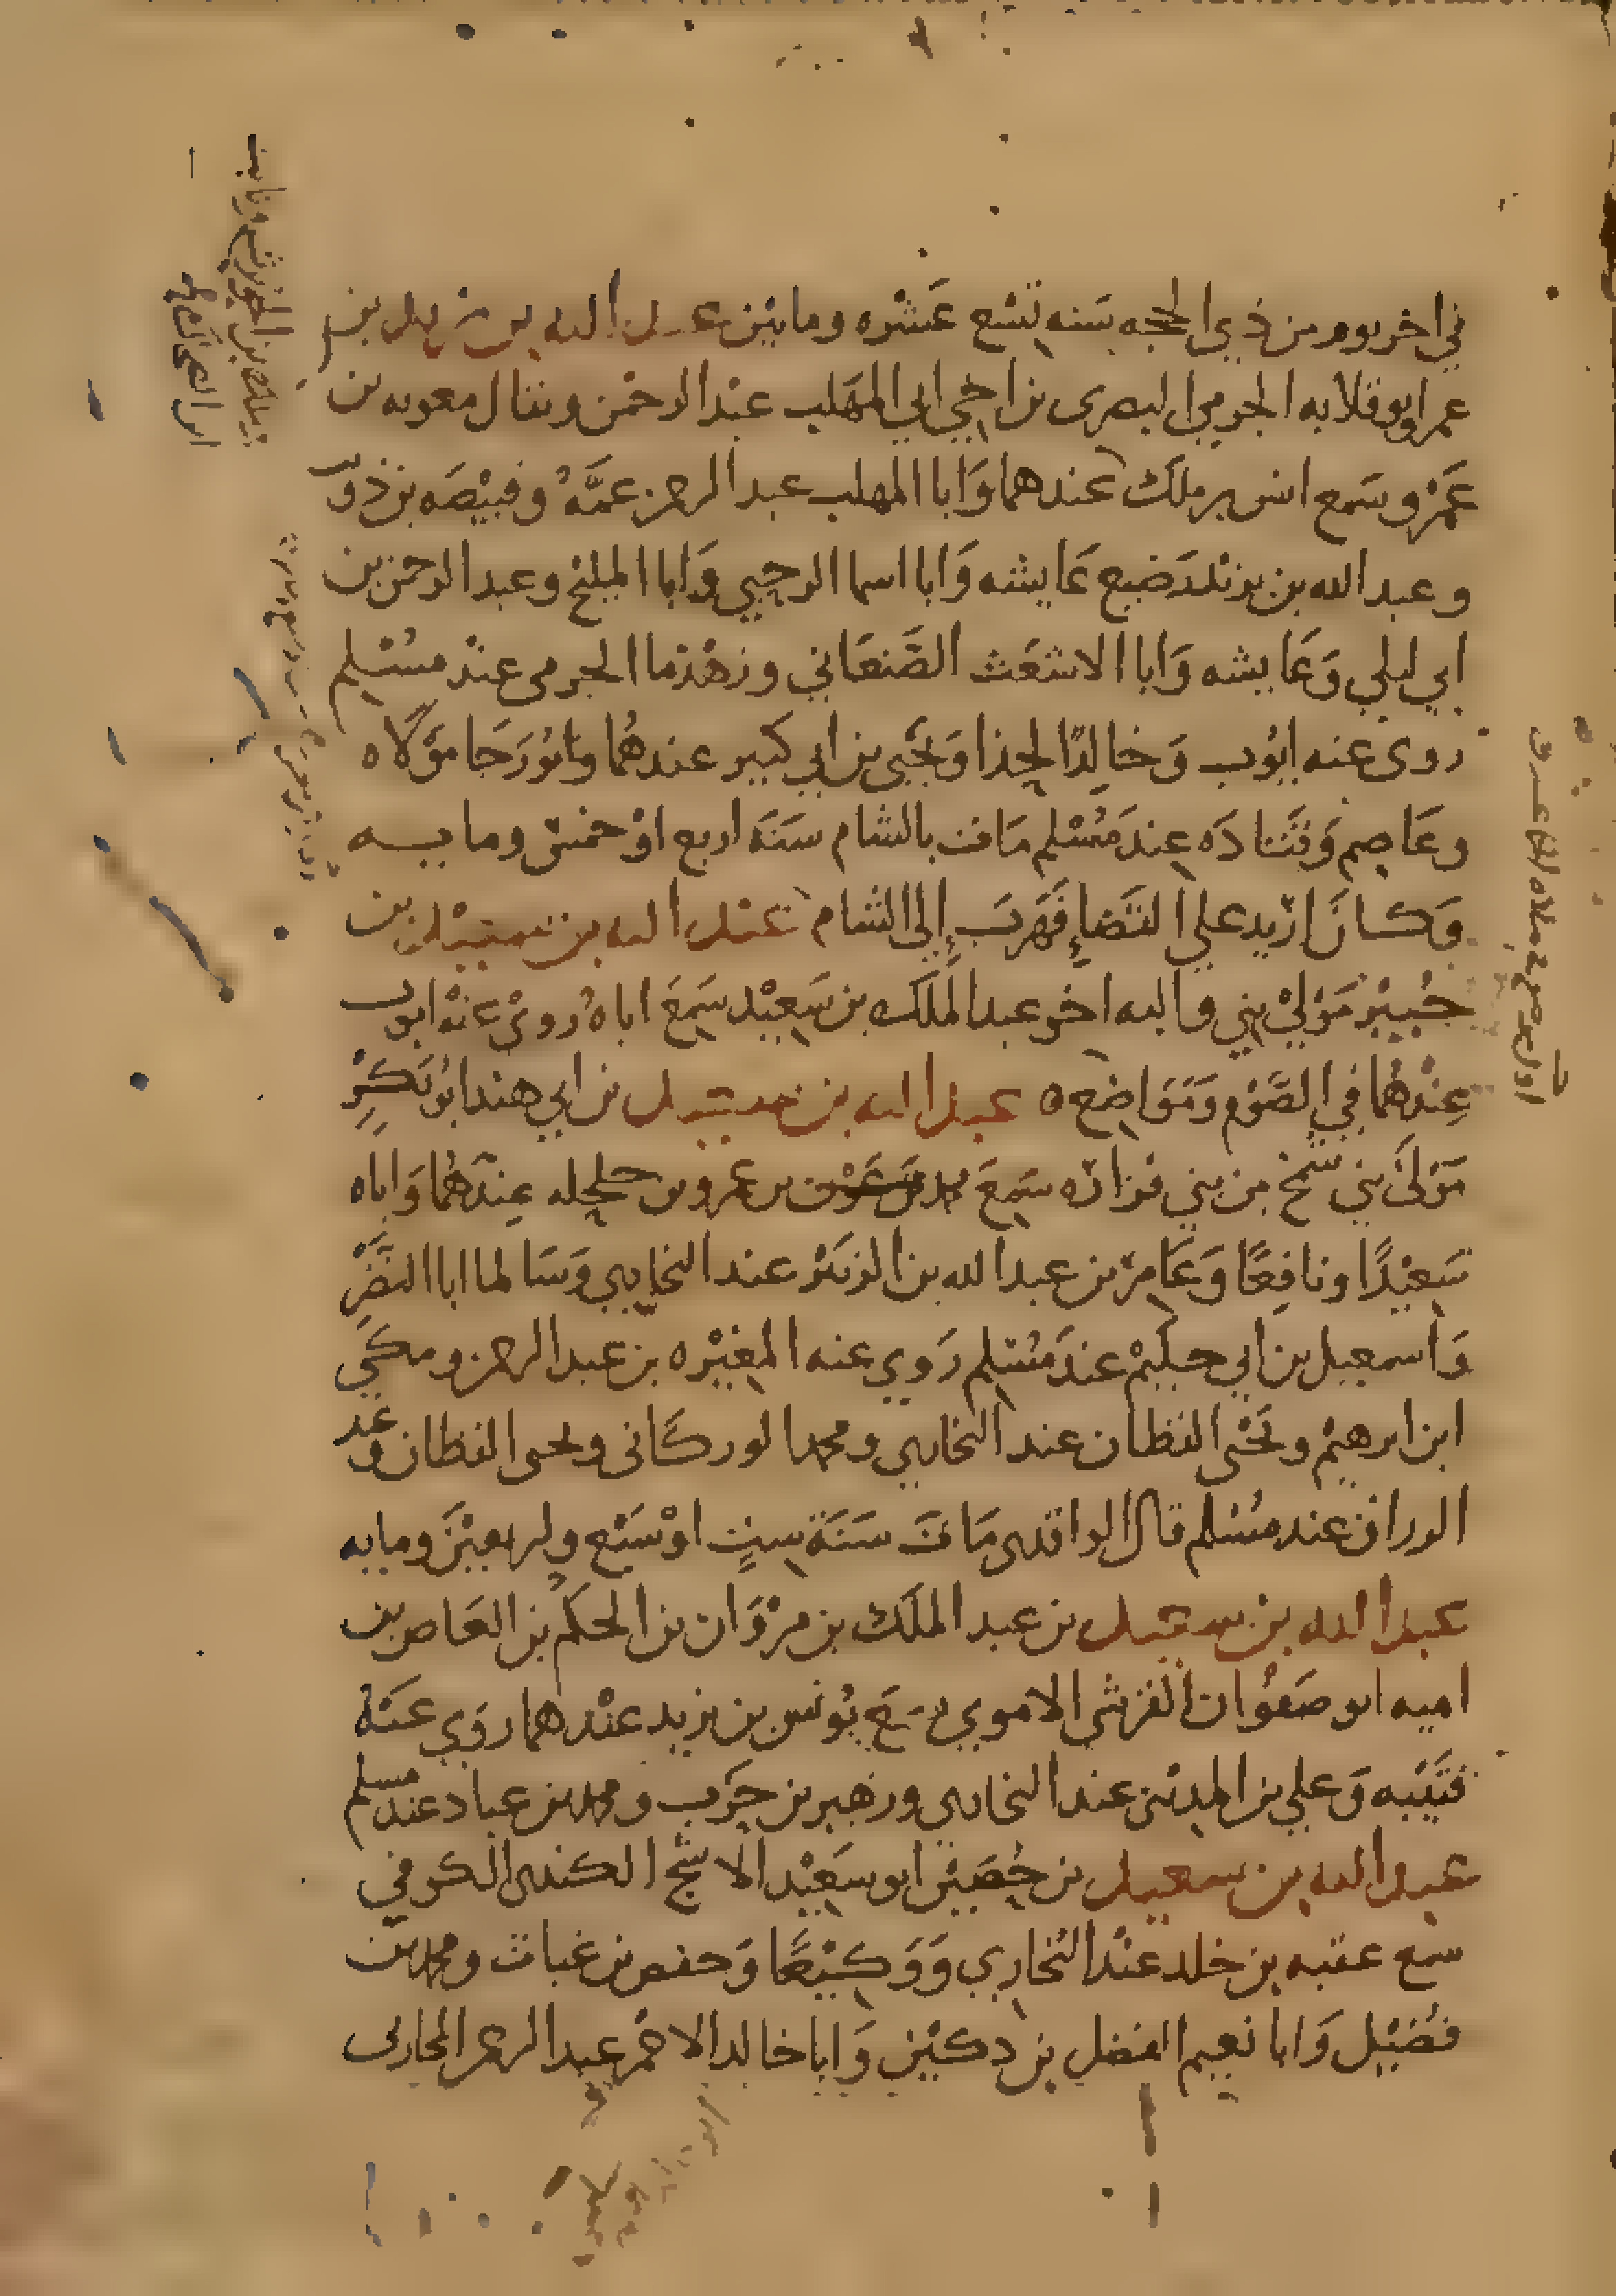 في اخر يوم من ذي الحجه سنه تسع عشره ومايتين عبد الله بن زيد بن
عمر ابو قلابه الجرمي البصرى بن اخي ابي المهلب عبد الرحمن ويقال معويه بن
عمرو سمع انس بن ملك عندهما وابا المهلب عبد الرحمن عمه وقبيصه بن ذويب
وعبد الله بن يزيد رضيع عايشه وابا اسما الرحبي وابا المليح وعبد الرحمن بن
ابي ليلي وعايشه وابا الاشعث الصنعاني وزهدما الجرمى عند مسلم
روى عنه ايوب وخالدا الحذا ويحيى بن ابي كبير عندهما وابو رجا مولاه
وعاصم وقتاده عند مسلم مات بالشام سنة اربع او خمس ومايه
وكان اريد علي القضاء فهرب إلى الشام عبد الله بن سعيد بن
جبير مولي بني والبه اخو عبد الملك بن سعيد سمع اباه روى عنه ايوب
عندهما في الصوم ومواضع ٥ عبد الله بن سعيد بن ابي هند ابو بكر
مولى بني شمخ من بني فزاره سمع محمد بن عمرو بن حلحله عندهما واباه
سعيدا ونافعا وعامر بن عبد الله بن الزبير عند البخاري وسالما ابا النضر
واسمعيل بن ابي حكيم عند مسلم روي عنه المغيره بن عبد الرحمن ومكي
ابن ابرهيم ويحيى القطان عند البخاري ومحمد الوركانى ويحيى القطان وعبد
الوراق عند مسلم قال الواقدى مات سنة ست او سبع واربعين ومايه
عبد الله بن سعيد بن عبد الملك بن مروان بن الحكم بن العاص بن
اميه ابو صفوان القرشي الاموي سمع يونس بن يزيد عندهما روي عنه
قتيبه وعلي بن المديني عند البخارى وزهير بن حرب ومحمد بن عباد عند مسلم
عبد الله بن سعيد بن حصين ابو سعيد الاشج الكندى الكوفي
سمع عقبه بن خلد عند البخاري ووكيعا وحفص بن غياث ومحمد بن
فضيل وابا نعيم الفضل بن دكين وابا خالد الاحمر عبد الرحمن المحاربى